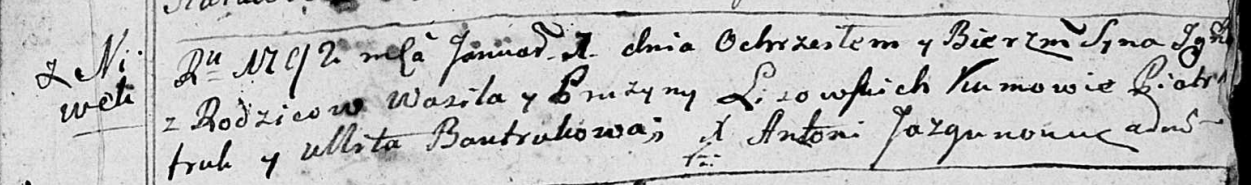 z Ni
weti
Ru 1792 mca Januar 1 dnia Ochrzciłem y Bierzm Syna Jgn
z Rodzicow Wasila y Pruzyny Lisowskich Kumowie Piotr
truk y Mrta Bautrukowa; X Antoni Jazgunowic adm